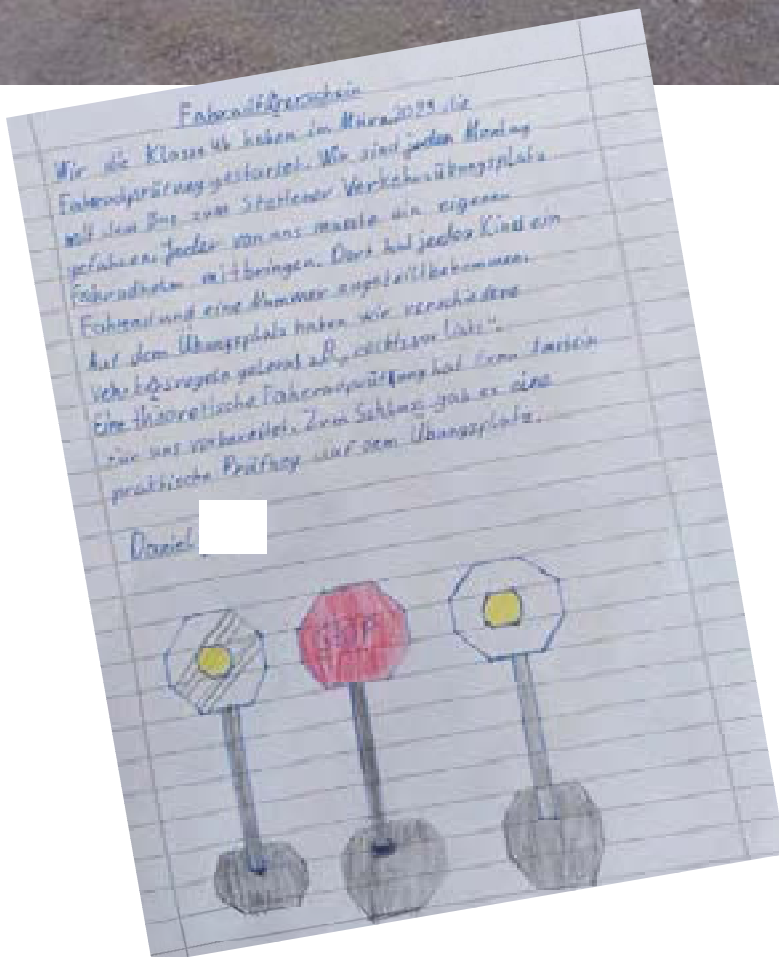 Fahrradführerschein
Wir die Klasse 4b haben im März 2023 die
Fahrradprüfung gestartet. Wir sind jeden Montag
mit dem Bus zum Verkehrsübungsplatz
gefahren. Jeder von uns musste ein eigenen
Fahrradhelm mitbringen. Dort hat jedes Kind ein
Fahrrad und eine Nummer zugeteilt bekommen.
Auf dem Übungsplatz haben wir verschiedene
gelernt z.B. „rechts vor links“.
Eine theoretische Fahrradprüfung hat Frau
für uns vorbereitet. Zum Schluss gab es eine
praktische Prüfung auf dem Übungsplatz.
Daniel
STOP